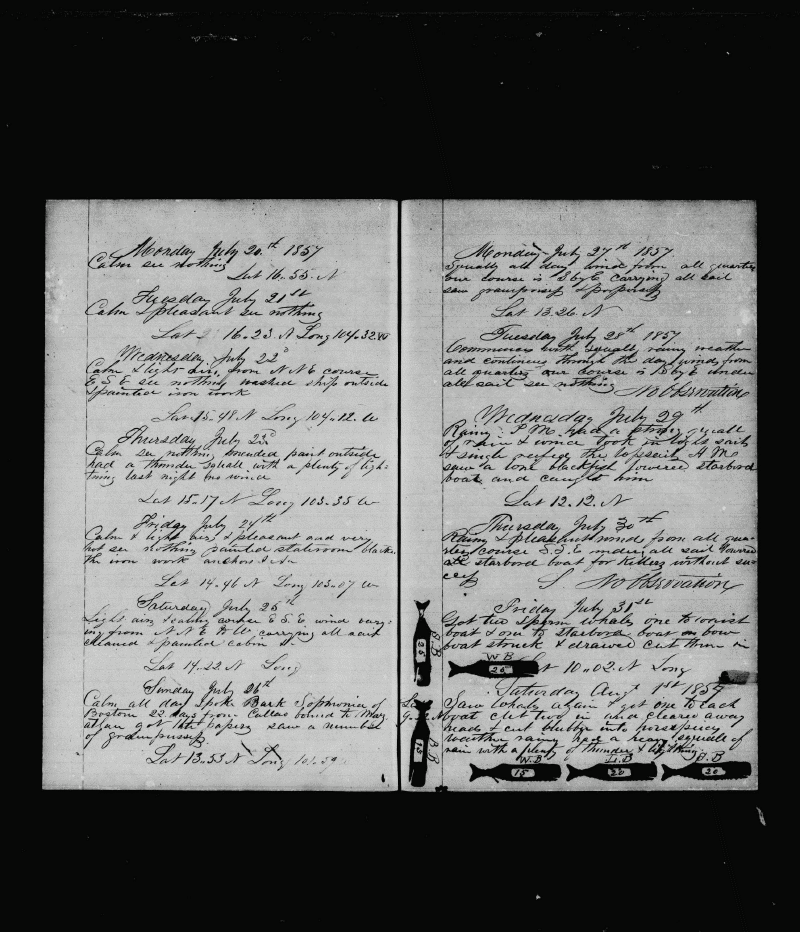 Monday July 20th 1857
Calm see nothing
Lat 16..55.. N
Tuesday July 21st
Calm & pleasant see nothing
Lat 16..23 N Long 104..32 W
Wednesday July 22d
Calm & light airs from N N E course
E S E see nothing washed ship outside
& painted iron work
Lat 15..48 N Long 104..12.. W
Thursday July 23d
Calm see nothing mended paint outside
had a thunder squall with a plenty of ligh-
tning last night no wind
Lat 15..17 N Long 103..35 W
Friday July 24th
Calm & light airs & pleasant and very
hot see nothing painted stateroom blacked
the iron work anchors &c
Lat 14..46 N Long 103..07 W
Saturday July 25th
Light airs & calms course E S E wind vary-
ing from N N E to W carrying all sail
cleaned & painted cabin
Lat 14..22 N Long
Sunday July 26th
Calm all day Spoke Bark Sophronia of
Boston 22 days from Callao bound to
got late papers saw a number
of grampusses
Lat 13..53 N Long 101..59
Monday July 27th 1857
Squally all day wind from all quarters
our course is S by E carrying all sail
saw grampusses & porpusses
Lat 13..26.. N
Tuesday July 28th 1857
Commences with squally rainy weather
and continues through the day winds from
all quarters our course is S by E under
all sail see nothing No Observation
Wednesday July 29th
Rainy P M had a strong squall
of rain & wind took in light sails
& single reefed the topsails A M
saw a lone blackfish lowered starbord
boat and caught him
Lat 12..12.. N
Thursday July 30th
Rainy & pleasant wind from all qua-
rters course S S E under all sail lowered
starbord boat for killers without suc-
cess No Observation
Friday July 31st
Got two sperm whales one to waist
boat & one to starbord boat bow
boat struck & drawed cut them in
W B
25
Lat 10..02.. N Long
S B
25
Saturday Augt 1st 1857
Saw whales again & got one to each
boat cut two in and cleared away
heads & cut blubber into horsepieces
weather rainy had a heavy squall of
rain with a plenty of thunder & lightning
B B
15
W B
15
L B
20
S B
20